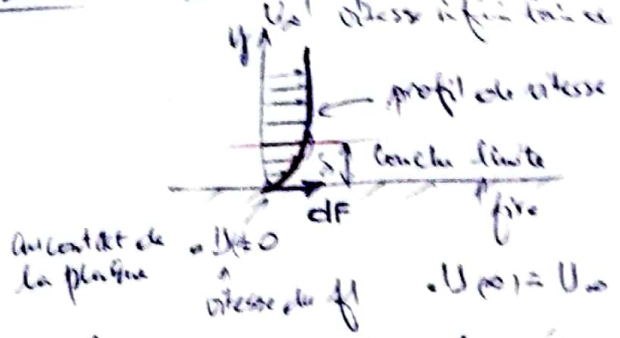 U∞ : vitesse infini
y
profil de vitesse
δ Couche limite
dF
fixe
au contact de . U = 0
la plaque
vitesse du fl
. U(∞) = U∞